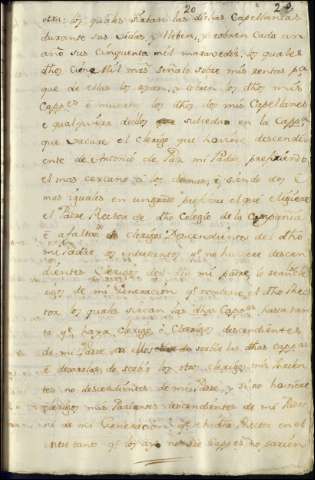 20 20
los quales Sirban las dichas Capellanias
durante sus vidas y lleben, y cobren Cada un
año sus Cinquenta mil maravedis, los quales
dhos Cien Mil mrs señalo sobre mis rentas pa
que de ellas los ayan, y cobren los dhos mis
Cappes é muerto los dhos dos mis Capellanes
é qualquiera dellos subcedan en la Capp
que bacare el clerigo que huviere descendi
ente de Antonio de Paz mi Padre, prefiriendo
el mas cercano á los demas, é siendo dos é
mas iguales en un grado prefiera el que eligiere
el Padre Rector de dho Colegio de la Compania
é á falta de clerigos Descendientes del dho
mi Padre, es entretanto que no huviere descen
dientes Clerigos del dho mi padre lo sean Cle
rigos de mi Generacion que nombre el dho Rec
tor los quales sirvan las dhas Capps hasta tan
to que haya Clerigo é Clerigos descendientes
de mi Padre, los dexen de servir las dhas capps
é dexarlas de servir los otros clerigos mis parien
tes no descendientes de mi Padre, y si no huviere
clerigos mis Parientes descendientes de mi Padre
ni de mi Generacion que el dho Rector en el
entretanto que los aya no sé capps no sacien